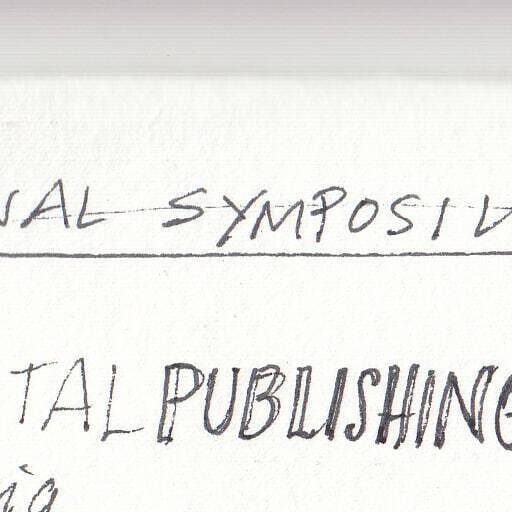 NAL SYMPOSIU
TAL PUBLISHING